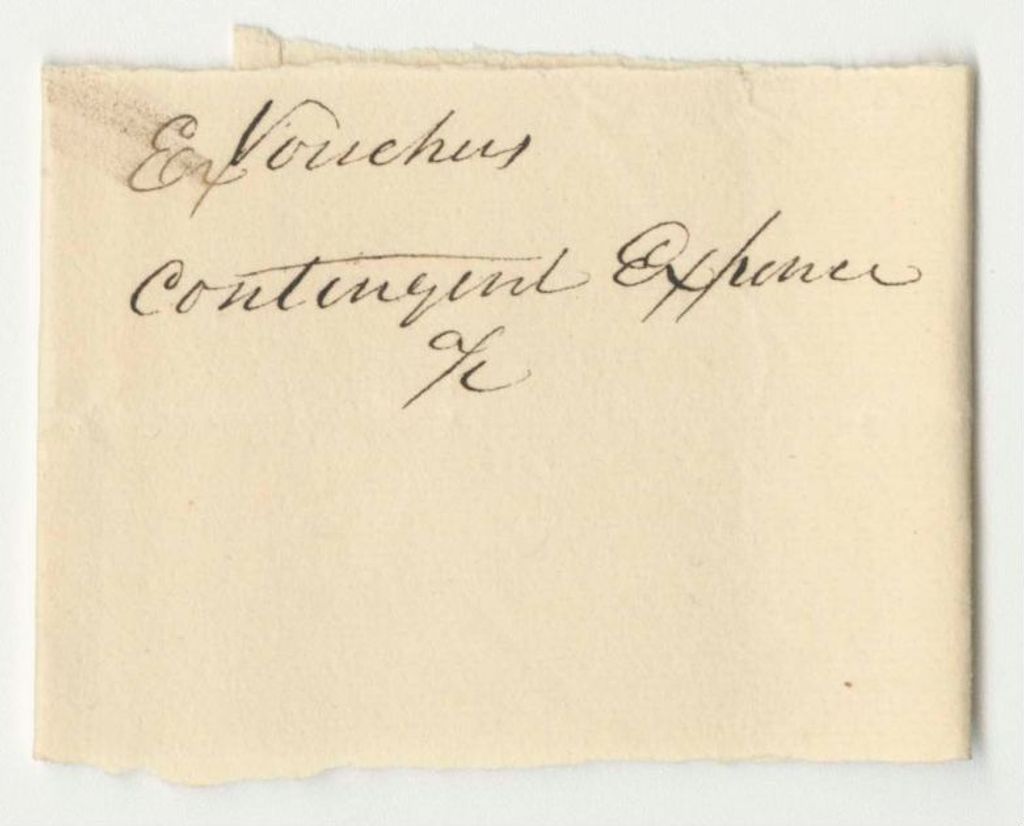 Ex Vouchers
Contingent Expence
a/c